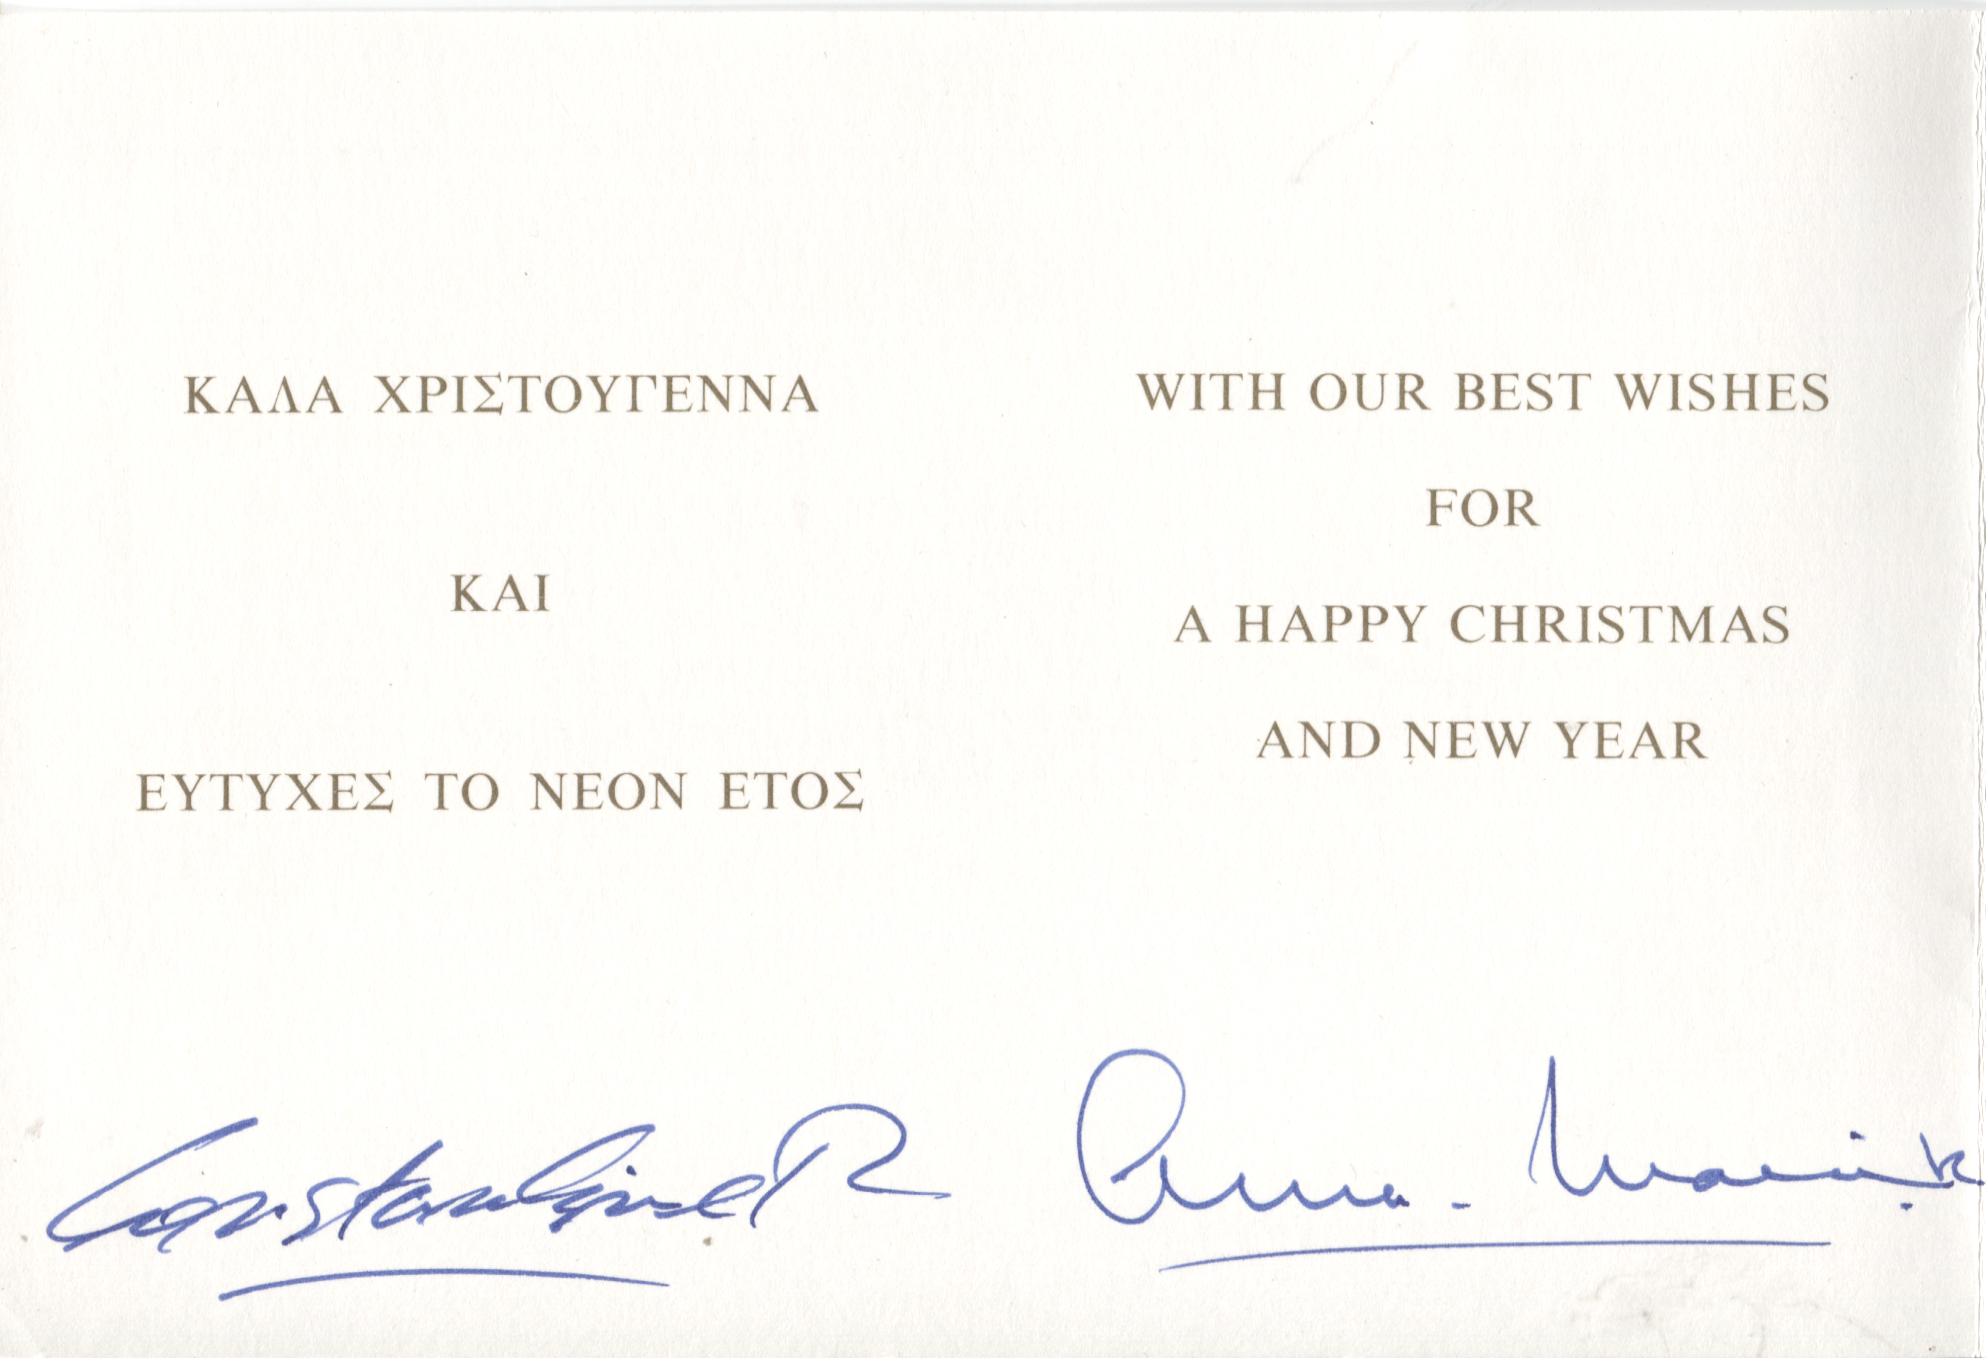 ΚΑΛΑ ΧΡΙΣΤΟΥΓΕΝΝΑ
ΚΑΙ
ΕΥΤΥΧΕΣ ΤΟ ΝΕΟΝ ΕΤΟΣ
Constantine R
WITH OUR BEST WISHES
FOR
A HAPPY CHRISTMAS
AND NEW YEAR
Anna-Maria. R